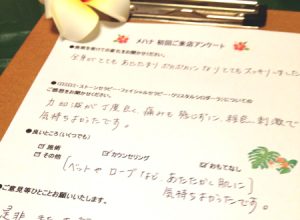 メハナ 初回ご来店アンケート
●施術を受けてのお客
をお聞かせください。
全身がとてもあたたまり ぽかぽかになりとてもスッキリしました
ストーンセラピー・フェイシャルセラピー・クリスタルシンギング についての
ご感想をお聞かせください。
力加減が丁度良く 痛みも感じずに、程良い刺激で
気持ちよかったです。
●良いところ(いくつでも)
☑施術
☑カウンセリング
☑おもてなし
☑その他
ベットやローブなど あたたかく肌に
気持ちよかったです。
●ご意見等ひとことお願いいたします。
是非